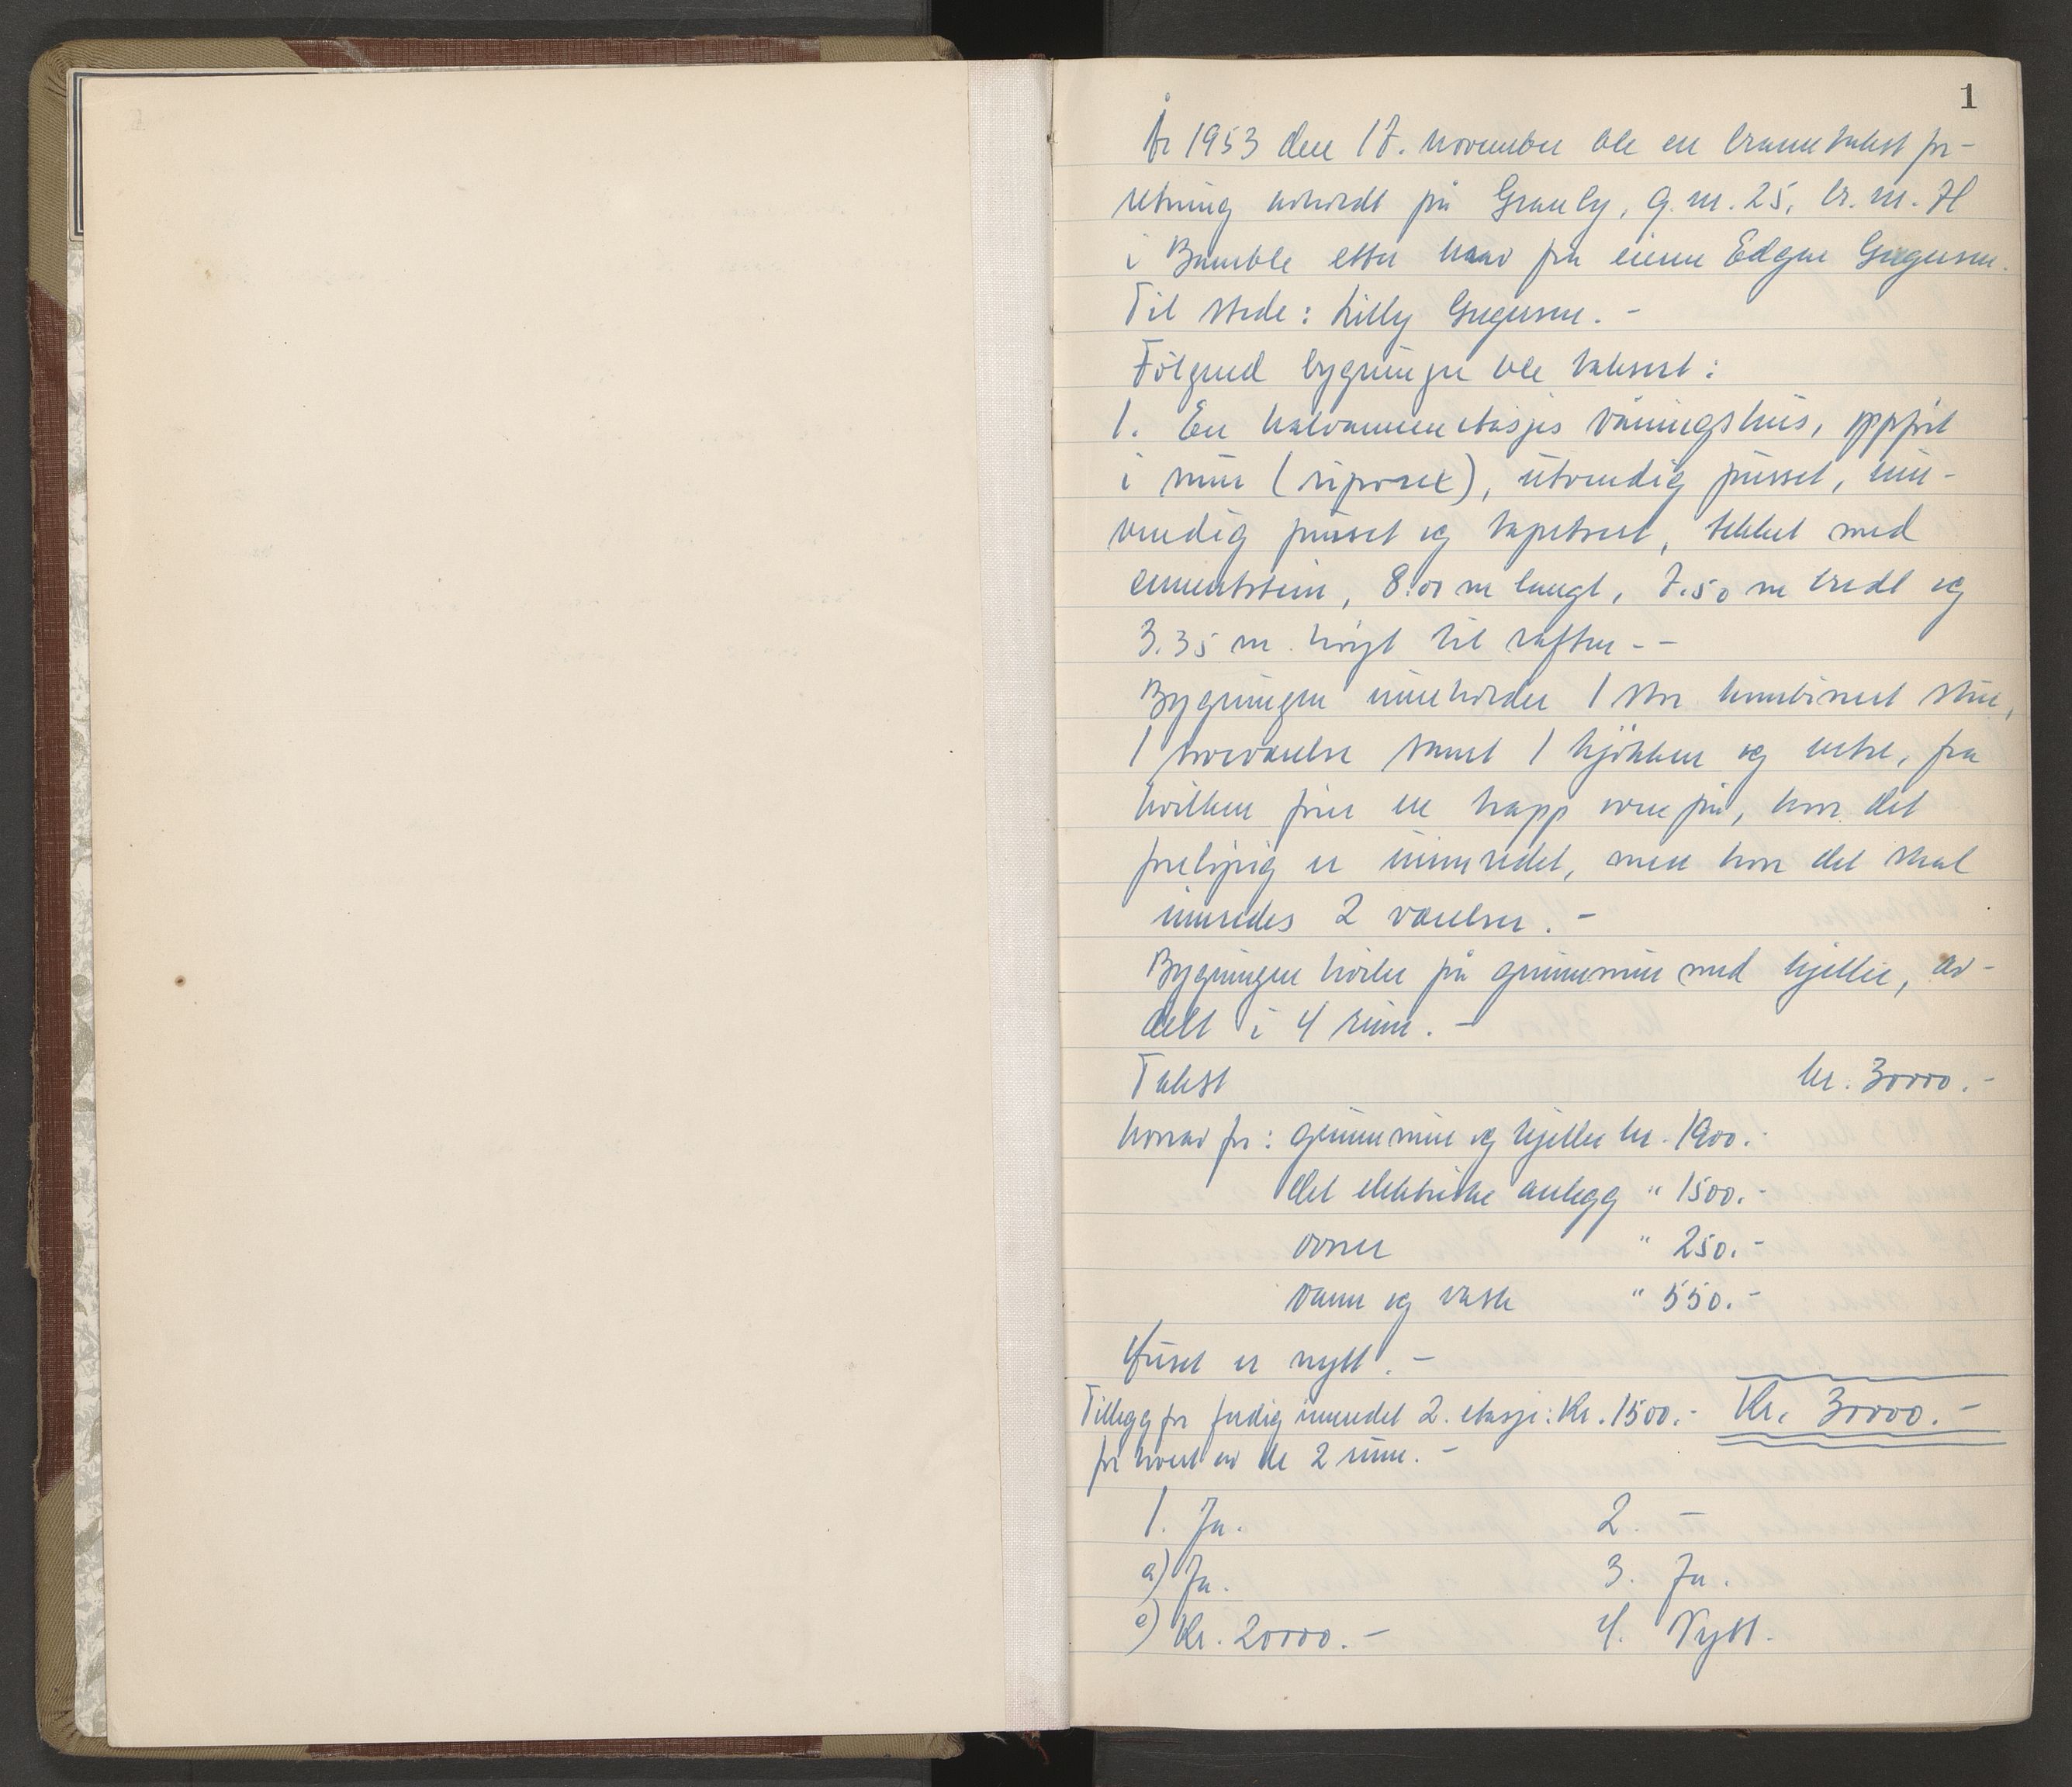 1
År 1953 den 17. november ble en branntakst for-
retning avholdt på Granly, g.nr. 25, br.nr. 71
i Bamble etter krav fra eieren Edgar Gregersen.
Til stede: Lilly Gregersen. -
Følgend bygninger ble taksert:
1. En halvannenetasjes våningshus, oppført
i mur (siporex), utvendig pusset, inn-
vendig pusset og tapetsert, tekket med
cementstein, 8.00 m langt, 7.50 m bredt og
3.35 m. høyt til raften - -
Bygningen inneholder 1 stor kombinert stue,
1 soveværelse samt 1 kjøkken og entre, fra
hvilken fører en trapp oven på, hvor det
foreløpig er uinnredet, men hvor det skal
innredes 2 værelser. -
Bygningen hviler på grunnmur med kjeller, av-
delt i 4 rum. -
Takst kr. 30000.-
hvorav for: grunnmur og kjeller kr. 1900.-
det elektriske anlegg " 1500.-
ovner " 250.-
vann og vask " 550.-
Huset er nytt. -
Tillegg for ferdig innredet 2. etasje: Kr. 1500.- Kr. 30000.-
for hvert av de 2 rum. -
1. Ja. 2. -
a) Ja. 3. Ja.
e) Kr. 20000. - 4. Nytt.